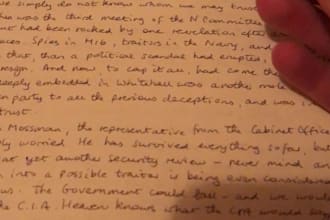 we simply do not know whom we may trust
was the third meeting of the N Committee
had been rocked by one revelation after
Spies in MI6, traitors in the Navy, and
that, than a political scandal had erupted,
And now to cap it all, had come the
deeply embedded in Whitehall was another mole
party to all the previous deceptions, and was
trust.
Mossman, the representative from the Cabinet Office
worried. He has survived everything so far, but
yet another security review - never mind an
into a possible traitor is being even considered
The Government could fall - and we would
the C.I.A. Heaven knows what the would